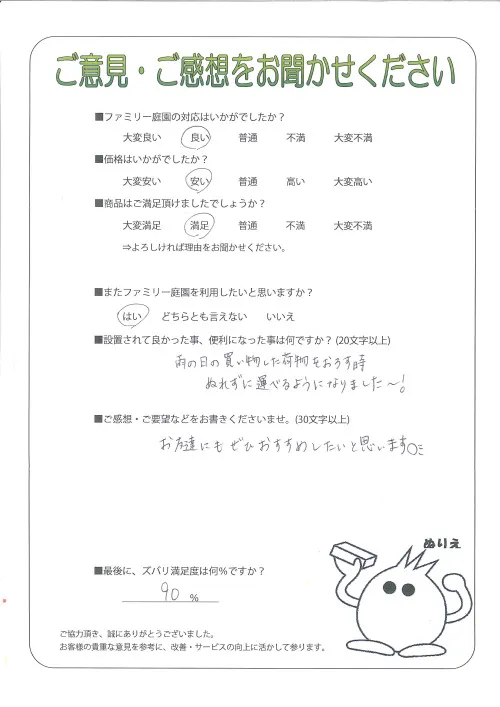 ご意見・ご感想をお聞かせください
■ファミリー庭園の対応はいかがでしたか？
大変良い 良い 普通 不満 大変不満
■価格はいかがでしたか？
大変安い 安い 普通 高い 大変高い
■商品はご満足頂けましたでしょうか？
大変満足 満足 普通 不満 大変不満
⇒よろしければ理由をお聞かせください。
■またファミリー庭園を利用したいと思いますか？
はい どちらとも言えない いいえ
■設置されて良かった事、便利になった事は何ですか？(20文字以上)
雨の日の買い物した荷物をおろす時
ぬれずに運べるようになりました〜!
■ご感想・ご要望などをお書きくださいませ。(30文字以上)
お友達にもぜひおすすめしたいと思います
ぬりえ
■最後に、ズバリ満足度は何％ですか？
90 %
ご協力頂き、誠にありがとうございました。
お客様の貴重な意見を参考に、改善・サービスの向上に活かして参ります。